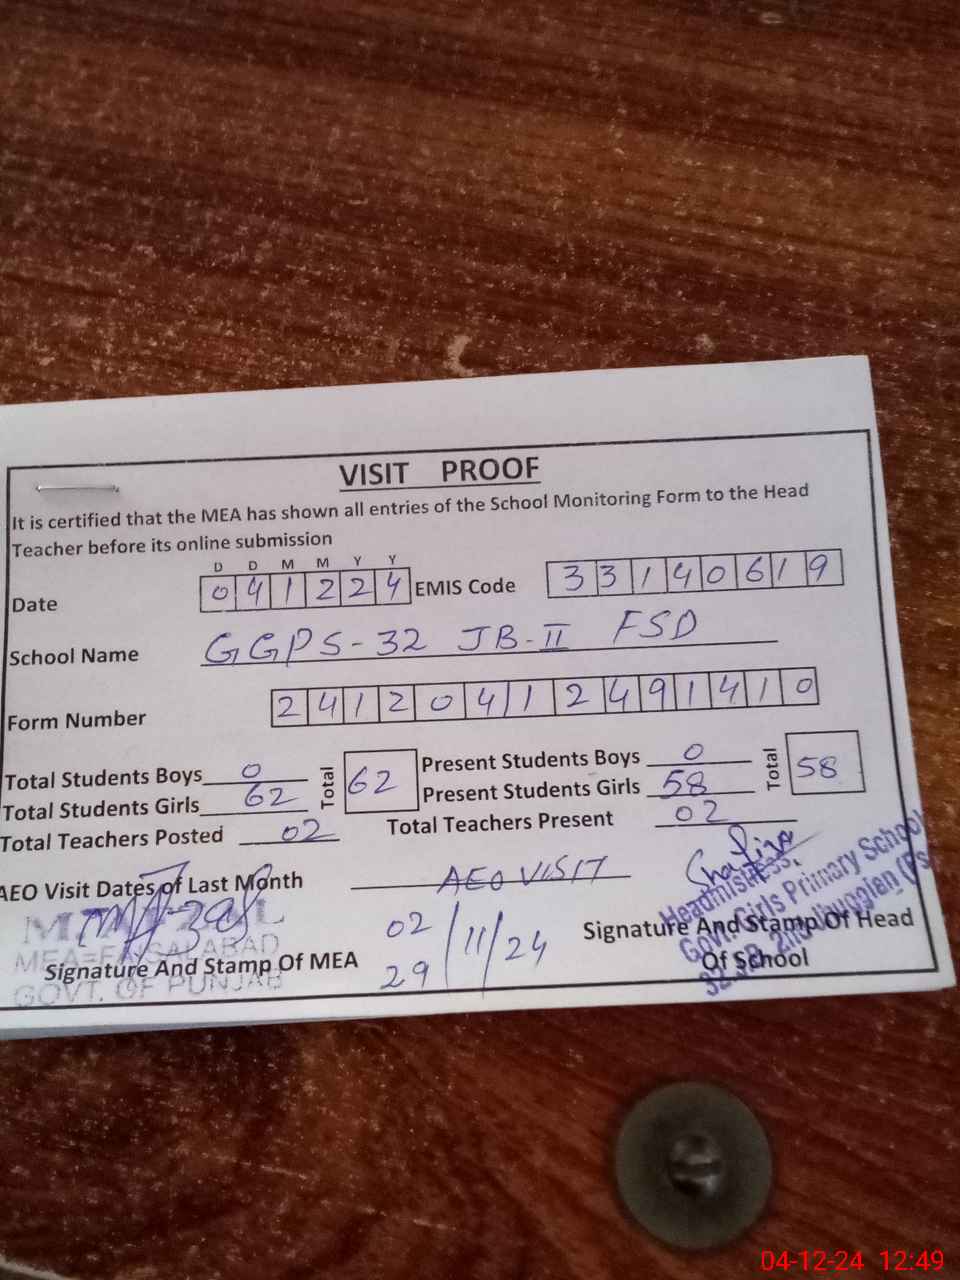 VISIT PROOF
It is certified that the MEA has shown all entries of the School Monitoring Form to the Head
Teacher before its online submission
D D M M Y Y
Date 0 4 1 2 2 4 EMIS Code 3 3 1 4 0 6 1 9
School Name GGPS-32 JB-II FSD
Form Number 2 4 1 2 0 4 1 2 4 9 1 4 1 0
Total Students Boys 0 Total 62 Present Students Boys 0 Total 58
Total Students Girls 62 Present Students Girls 58
Total Teachers Posted 02 Total Teachers Present 02
AEO Visit Dates of Last Month AEO VISIT
02
29 /11/24
MEA=FAISALABAD
GOVT. OF PUNJAB
Signature And Stamp Of MEA
Headmistress,
Govt. Girls Primary School
32 JB,
Signature And Stamp Of Head
Of School
04-12-24 12:49